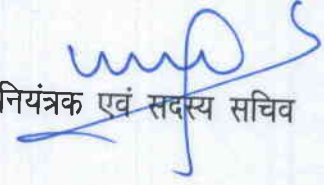 नियंत्रक एवं सदस्य सचिव